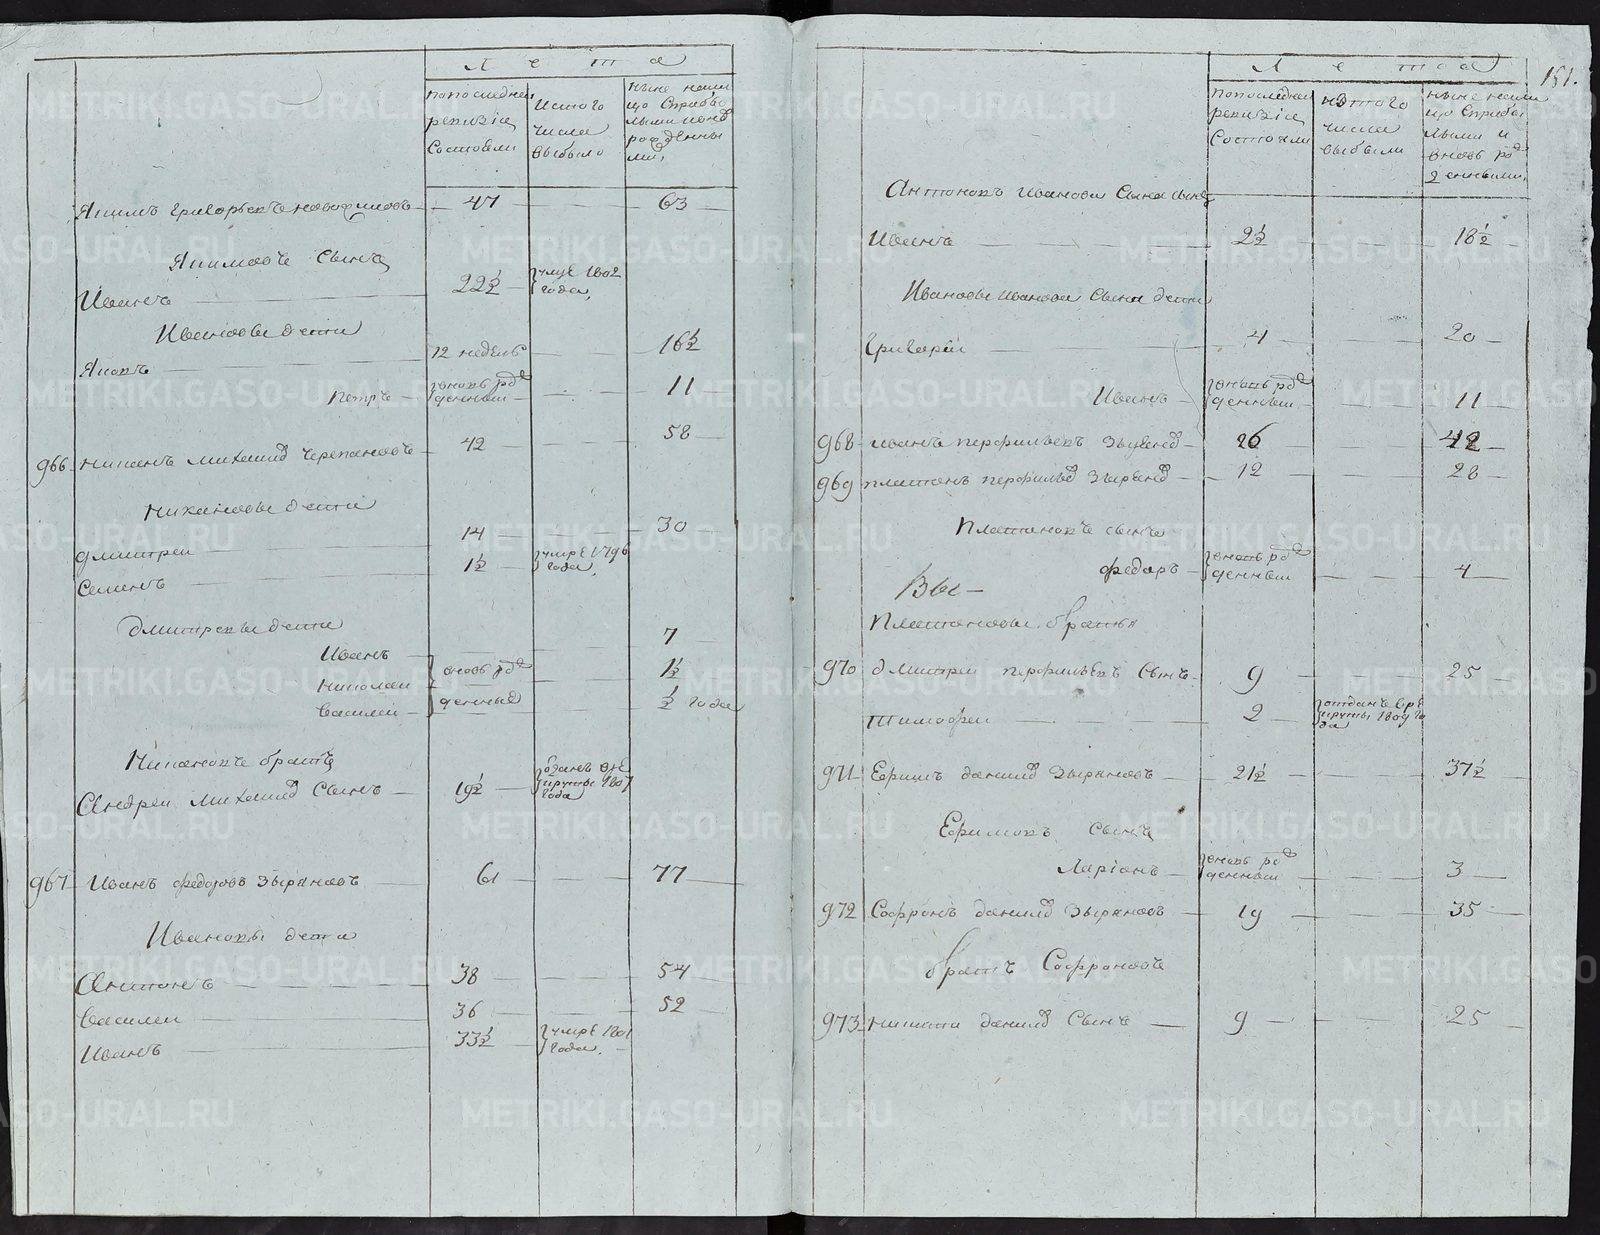 Лета
по последней ревизіи состояли
Ис того числа выбыло
ныне налицо с прибылыми и вновь рожденными
Якимъ Григорьевъ 47 63
Якимовъ сынъ
Иванъ 22½ умре 1802 года
Ивановы дети
Яковъ 12 недель 16½
Петръ вновь рожденный 11
966 Никанъ Михайловъ Черепановъ 42 58
Никановы дети
Дмитреи 14 30
Семенъ 1½ умре 1796 года
Дмитревы дети
Иванъ 7
Николаи вновь рож 1½
Василеи денные ½ года
Никановъ братъ
Андреи Михайловъ сынъ 19½ отданъ в рекруты 1807 года
967 Иванъ Федоровъ Зыряновъ 61 77
Ивановы дети
Антонъ 38 54
Василеи 36 52
Иванъ 33½ умре 1801 года
181.
Лета
по последней ревизіи состояли
из того числа выбыли
ныне налицо с прибылыми и вновь рожденными
Антоновъ Иванова сына сынъ
Иванъ 2½ 18½
Ивановы Иванова сына дети
Григореи 4 20
Иванъ вновь рожденныи 11
968 Иванъ Перфильевъ 26 42
969 Платонъ Перфильев Зырянов 12 28
Платоновъ сынъ
Федоръ вновь рожденныи 4
Вы-
Платоновы братья
970 Дмитреи Перфильевъ сынъ 9 25
Тимофеи 2 отданъ в рекруты 1809 года
971 Ефимъ Данилов Зыряновъ 21½ 37½
Ефимовъ сынъ
Ларіонъ вновь рожденныи 3
972 Софронъ Данилов Зыряновъ 19 35
братъ Софроновъ
973 Никита Данилов сынъ 9 25
METRIKI.GASO-URAL.RU